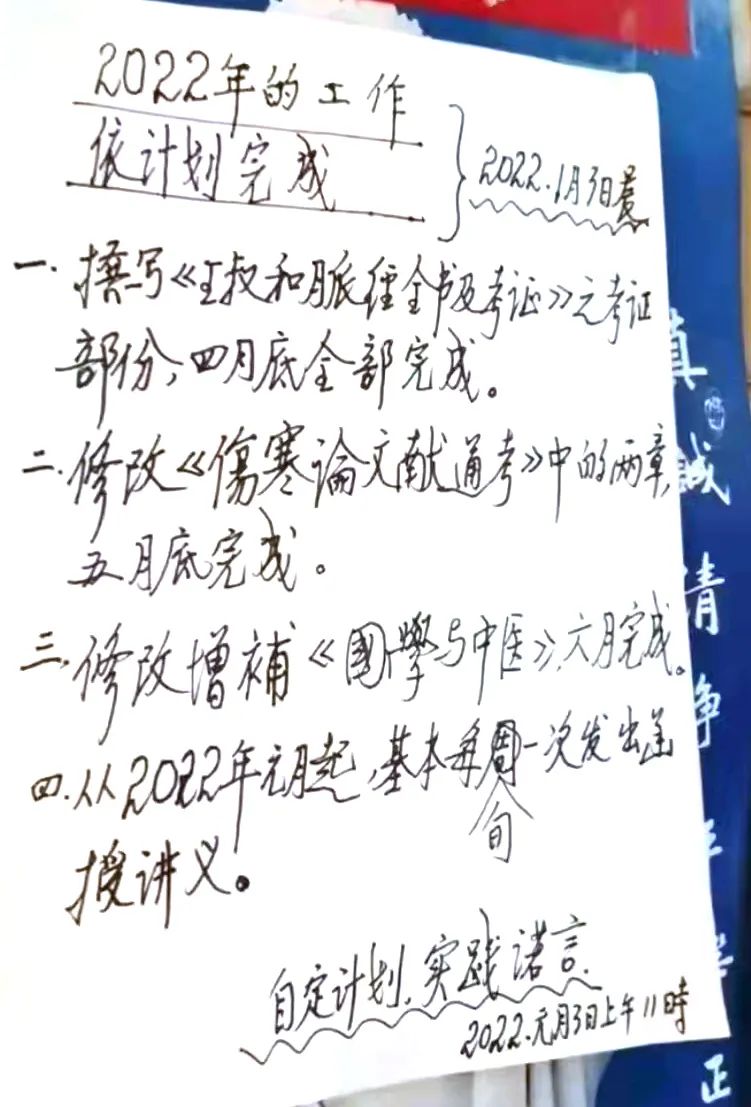 2022年的工作
依计划完成
2022.1月3日晨
一.撰写《王叔和脈經全书及考证》之考证
部份，四月底全部完成。
二.修改《傷寒論文献通考》中的两章，
五月底完成。
三.修改增補《國學与中医》，六月完成。
四.从2022年元月起，基本每周一次发出函
旬
授讲义。
自定计划，实践诺言.
2022.元月3日上午11時
真
誠
清
净
平
正